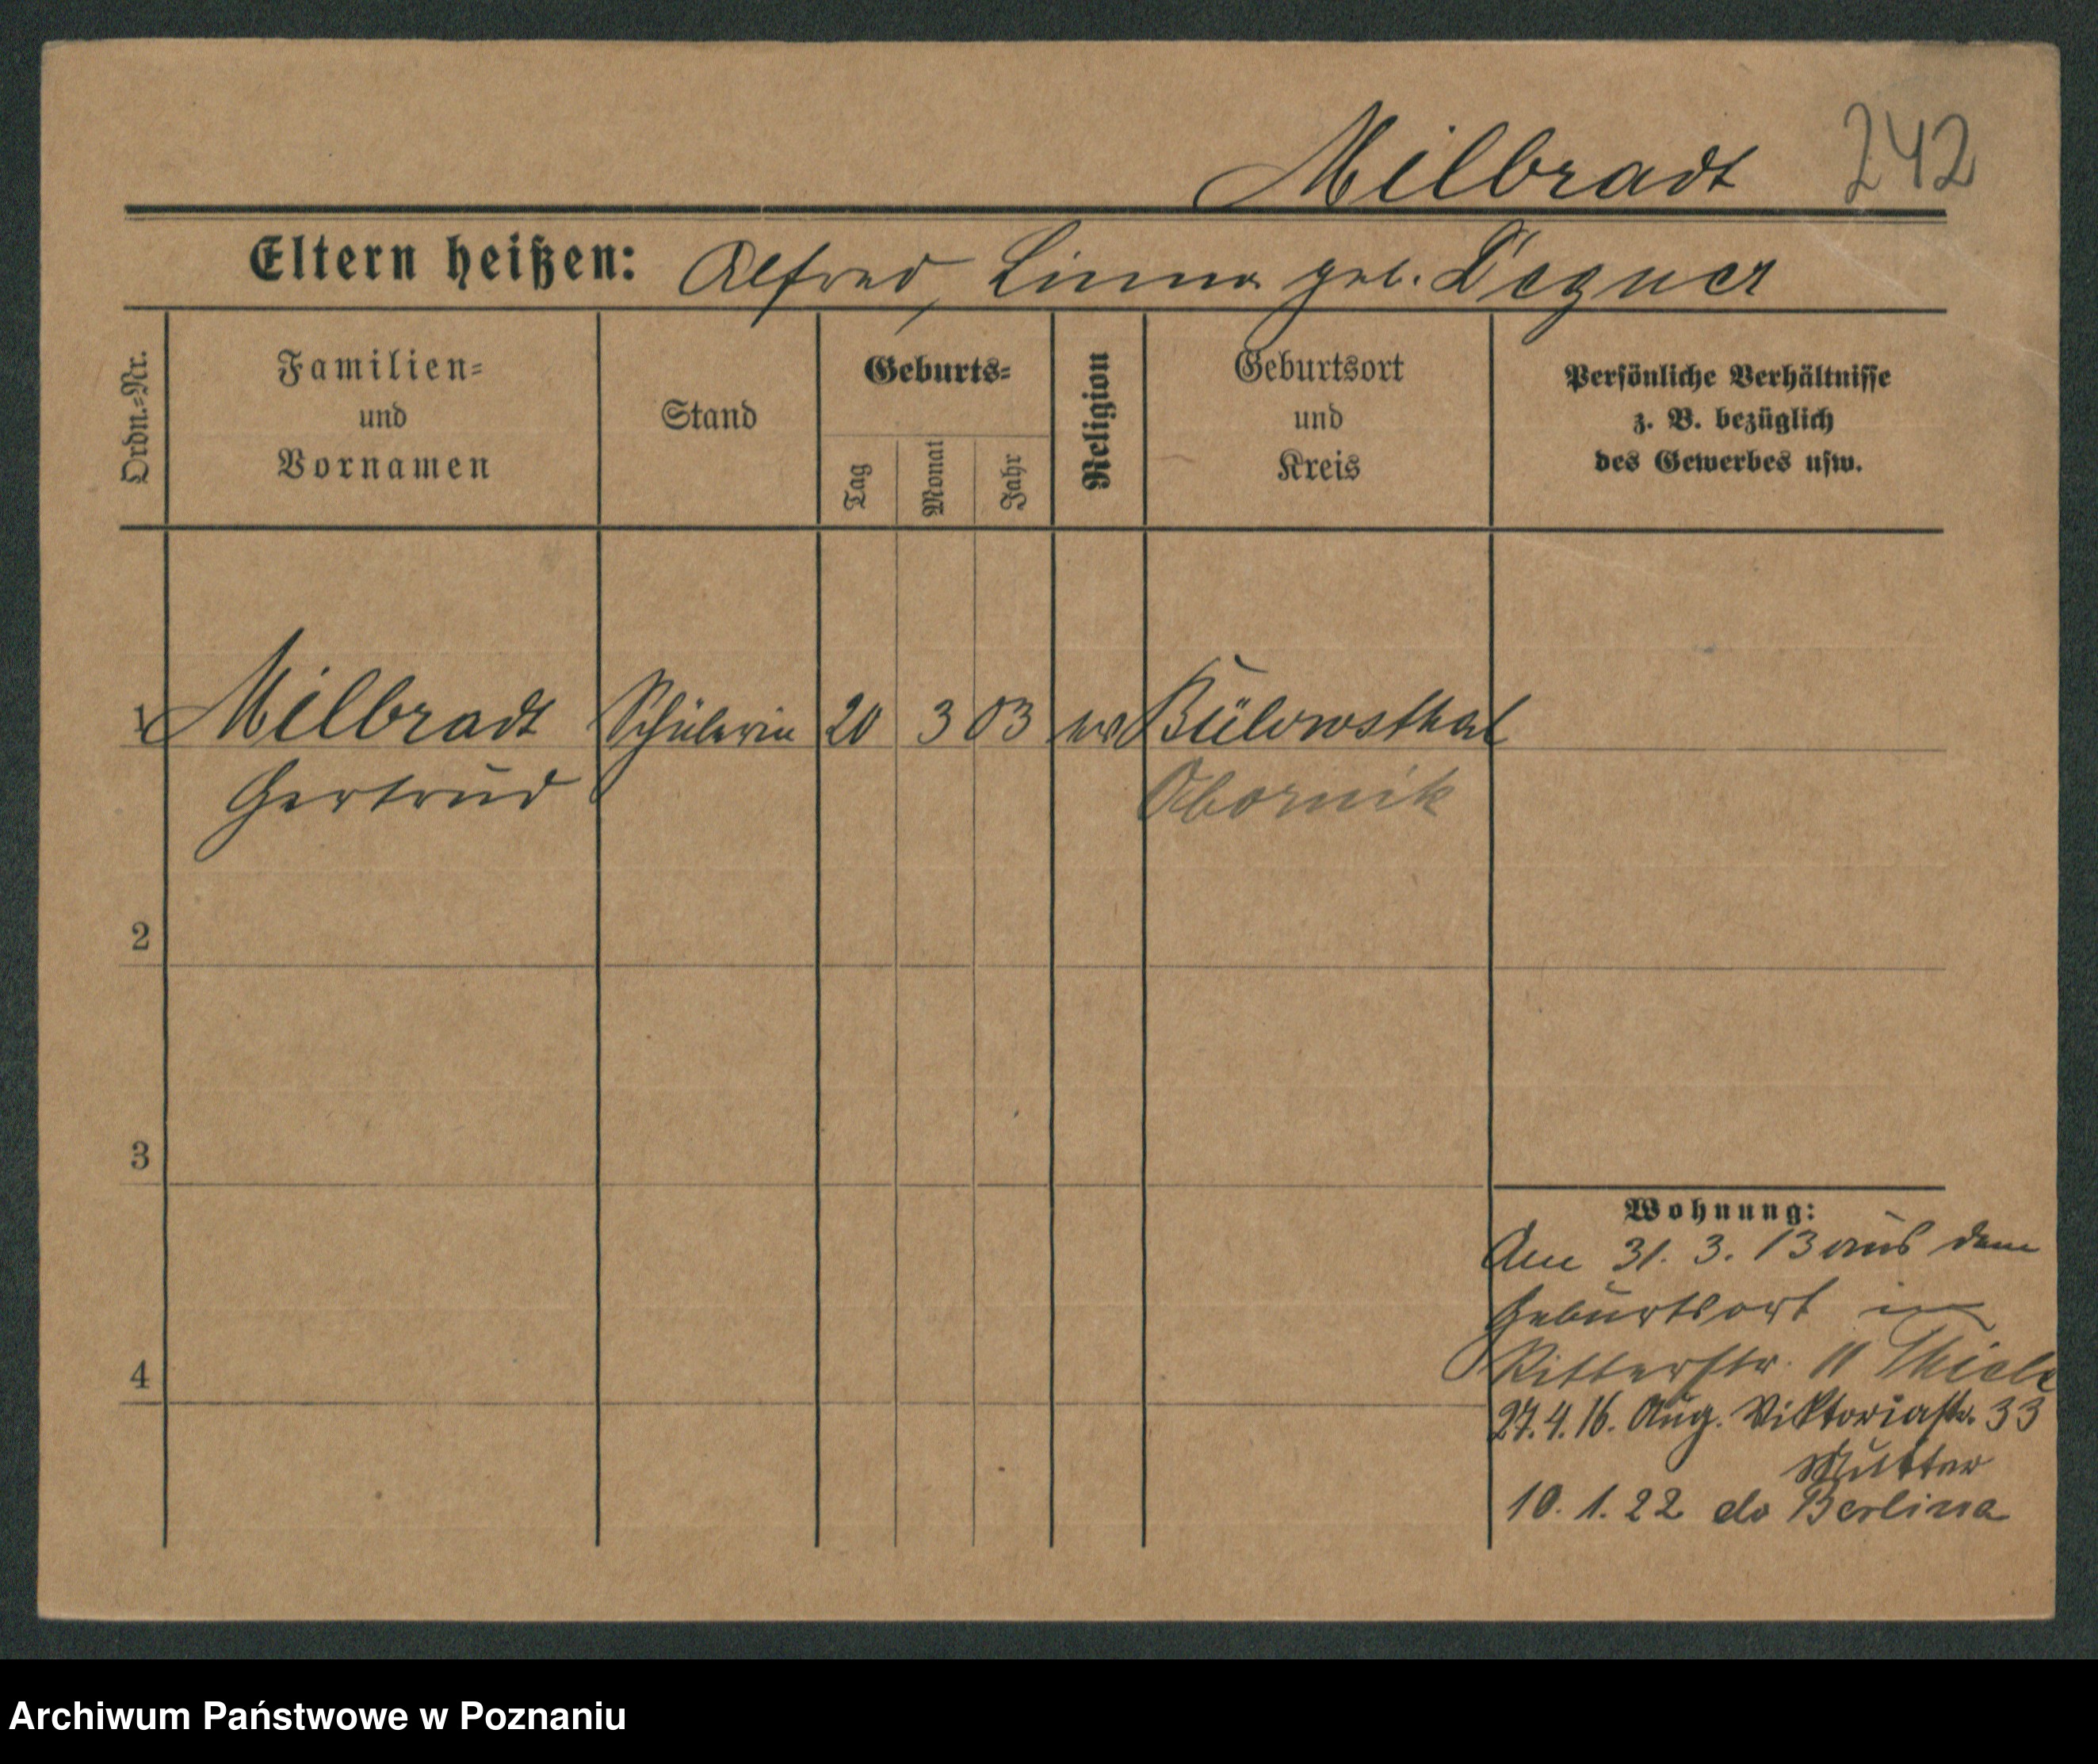 Milbradt 242
Eltern heißen: Alfred, Linna geb. Degner
Ordn.-Nr.
Familien-
und
Vornamen
Stand
Geburts-
Tag
Monat
Jahr
Religion
Geburtsort
und
Kreis
Persönliche Verhältnisse
z. B. bezüglich
des Gewerbes usw.
1 Milbradt Schülerin 20 3 03 ev Bülowsthal
Gertrud Obornik
2
3
4
Wohnung:
Am 31. 3. 13 aus dem
Geburtsort in
Ritterstr. 11 Thiele
27.4.16. Aug. Viktoriastr. 33
Mutter
10. 1. 22 do Berlina
Archiwum Państwowe w Poznaniu